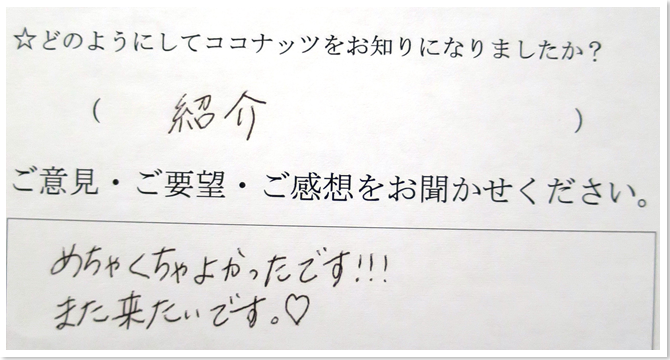 ☆どのようにしてココナッツをお知りになりましたか？
（ 紹介 ）
ご意見・ご要望・ご感想をお聞かせください。
めちゃくちゃよかったです!!!
また来たいです。♡